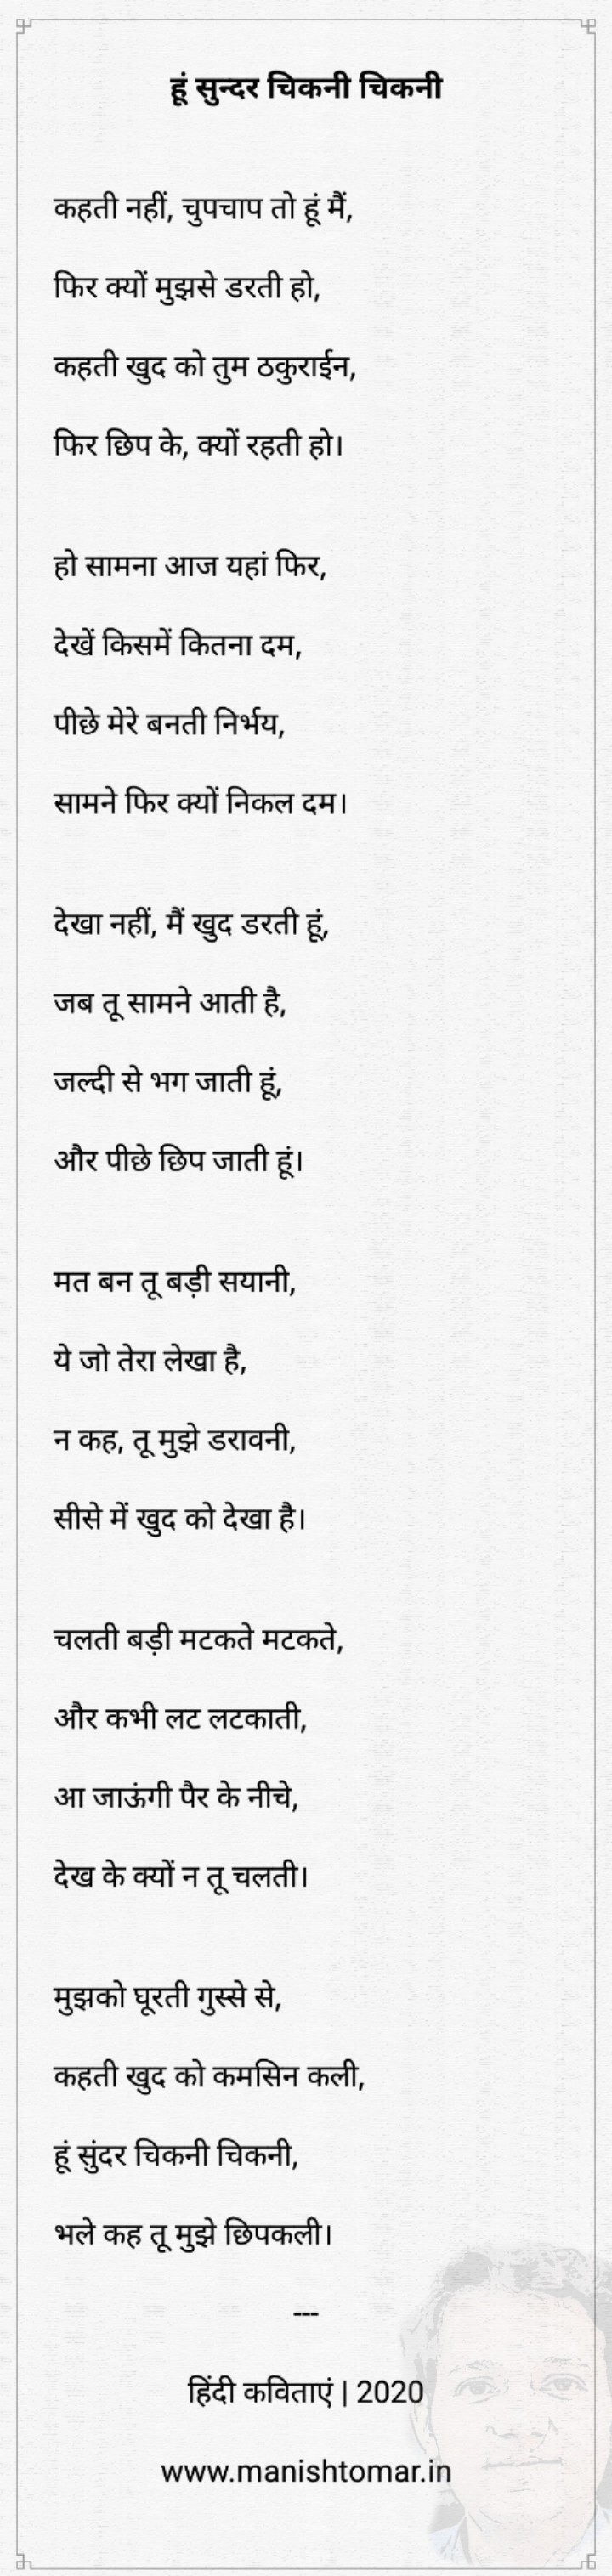 हूं सुन्दर चिकनी चिकनी
कहती नहीं, चुपचाप तो हूं मैं,
फिर क्यों मुझसे डरती हो,
कहती खुद को तुम ठकुराईन,
फिर छिप के, क्यों रहती हो।
हो सामना आज यहां फिर,
देखें किसमें कितना दम,
पीछे मेरे बनती निर्भय,
सामने फिर क्यों निकल दम।
देखा नहीं, मैं खुद डरती हूं,
जब तू सामने आती है,
जल्दी से भग जाती हूं,
और पीछे छिप जाती हूं।
मत बन तू बड़ी सयानी,
ये जो तेरा लेखा है,
न कह, तू मुझे डरावनी,
सीसे में खुद को देखा है।
चलती बड़ी मटकते मटकते,
और कभी लट लटकाती,
आ जाऊंगी पैर के नीचे,
देख के क्यों न तू चलती।
मुझको घूरती गुस्से से,
कहती खुद को कमसिन कली,
हूं सुंदर चिकनी चिकनी,
भले कह तू मुझे छिपकली।
---
हिंदी कविताएं | 2020
www.manishtomar.in